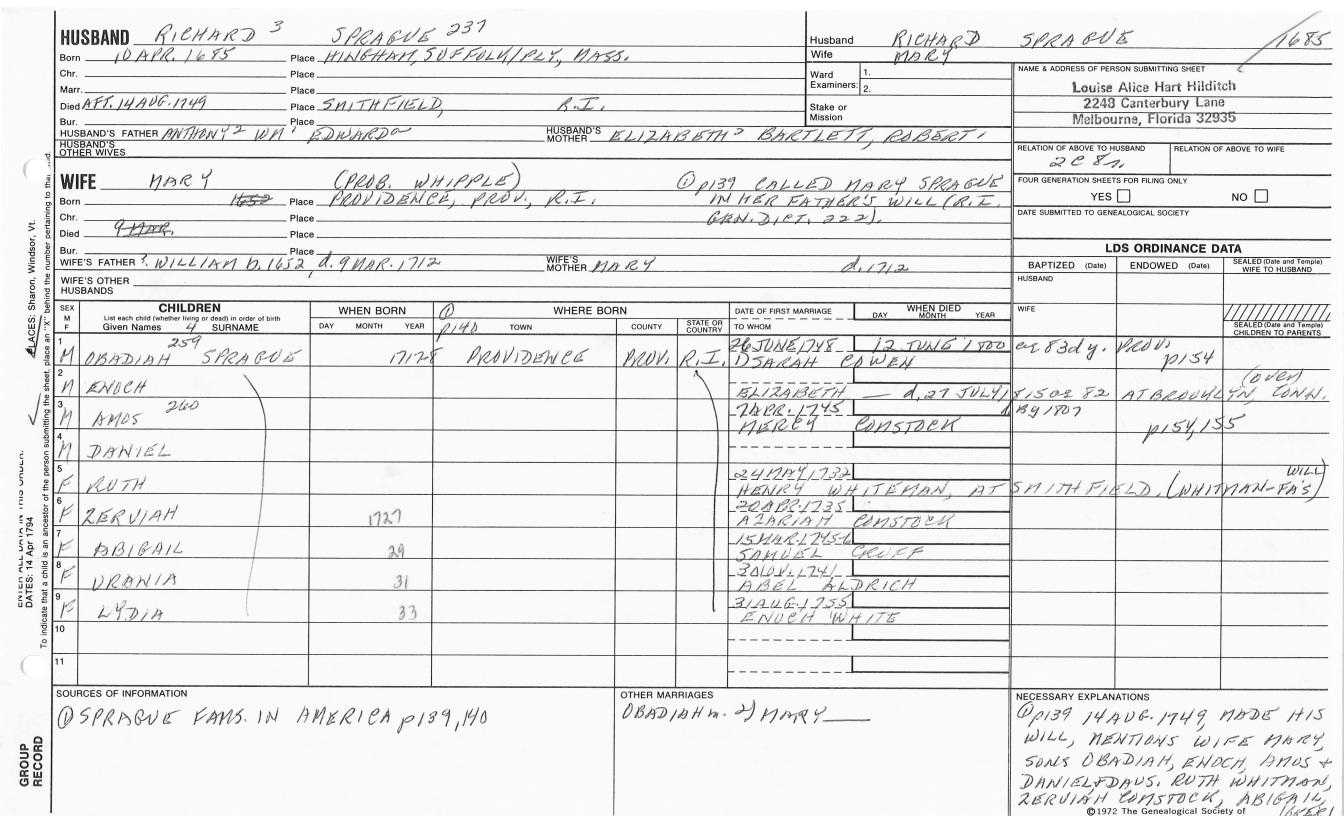 HUSBAND RICHARD 3 SPRAGUE 237
Born 10 APR. 1685 Place HINGHAM, SUFFOLK/PLY, MASS.
Chr. Place
Marr. Place
Died AFT. 14 AUG. 1749 Place SMITHFIELD, R.I.
Bur. Place
HUSBAND'S FATHER ANTHONY2 WM1 EDWARDa HUSBAND'S MOTHER ELIZABETH2 BARTLETT, ROBERT1
HUSBAND'S OTHER WIVES
Husband RICHARD SPRAGUE 1685
Wife MARY
Ward Examiners: 1. 2.
Stake or Mission
NAME & ADDRESS OF PERSON SUBMITTING SHEET
Louise Alice Hart Hilditch
2248 Canterbury Lane
Melbourne, Florida 32935
RELATION OF ABOVE TO HUSBAND RELATION OF ABOVE TO WIFE
2C8r.
FOUR GENERATION SHEETS FOR FILING ONLY
YES NO
DATE SUBMITTED TO GENEALOGICAL SOCIETY
WIFE MARY (PROB. WHIPPLE) ① p139 CALLED MARY SPRAGUE
Born 1652 Place PROVIDENCE, PROV., R.I. IN HER FATHER'S WILL (R.I.
Chr. Place GEN. DICT. 222).
Died 9 MAR. Place
Bur. Place
WIFE'S FATHER ?. WILLIAM b. 1652 d. 9 MAR. 1712 WIFE'S MOTHER MARY d. 1712
WIFE'S OTHER HUSBANDS
LDS ORDINANCE DATA
BAPTIZED (Date) ENDOWED (Date) SEALED (Date and Temple) WIFE TO HUSBAND
HUSBAND
WIFE
SEALED (Date and Temple) CHILDREN TO PARENTS
SEX M F CHILDREN WHEN BORN ① WHERE BORN DATE OF FIRST MARRIAGE WHEN DIED
List each child (whether living or dead) in order of birth
Given Names 4 SURNAME DAY MONTH YEAR p140 TOWN COUNTY STATE OR COUNTRY TO WHOM DAY MONTH YEAR
1 M OBADIAH 259 SPRAGUE 1712 8 PROVIDENCE PROV. R.I. 26 JUNE 1748 12 JUNE 1800 ae 83dy. PROV. p154
1) SARAH COWEN
2 M ENOCH (over)
ELIZABETH — d. 27 JULY 1815 ae 82 AT BROOKLYN, CONN.
3 M AMOS 260 7 APR. 1745 d By 1807
MERCY COMSTOCK p154,155
4 M DANIEL
5 F RUTH 24 MAY 1732 WILL
HENRY WHITEMAN, AT SMITHFIELD. (WHITMAN-FA'S)
6 F ZERVIAH 1727 20 APR. 1735
AZARIAH COMSTOCK
7 F ABIGAIL 29 15 MAR. 1745-6
SAMUEL
8 F URANIA 31 3 NOV. 1741
ABEL ALDRICH
9 F LYDIA 33 31 AUG. 1755
ENOCH WHITE
10
11
SOURCES OF INFORMATION
① SPRAGUE FAMS. IN AMERICA p139,140
OTHER MARRIAGES
OBADIAH m. 2) MARY
NECESSARY EXPLANATIONS
① p139 14 AUG. 1749, MADE HIS
WILL, MENTIONS WIFE MARY,
SONS OBADIAH, ENOCH, AMOS +
DANIEL + DAUS. RUTH WHITMAN,
ZERVIAH COMSTOCK, ABIGAIL,
©1972 The Genealogical Society of
PLACES: Sharon, Windsor, Vt.
DATES: 14 Apr 1794
To indicate that a child is an ancestor of the person submitting the sheet, place an "X" behind the number pertaining to that
GROUP RECORD